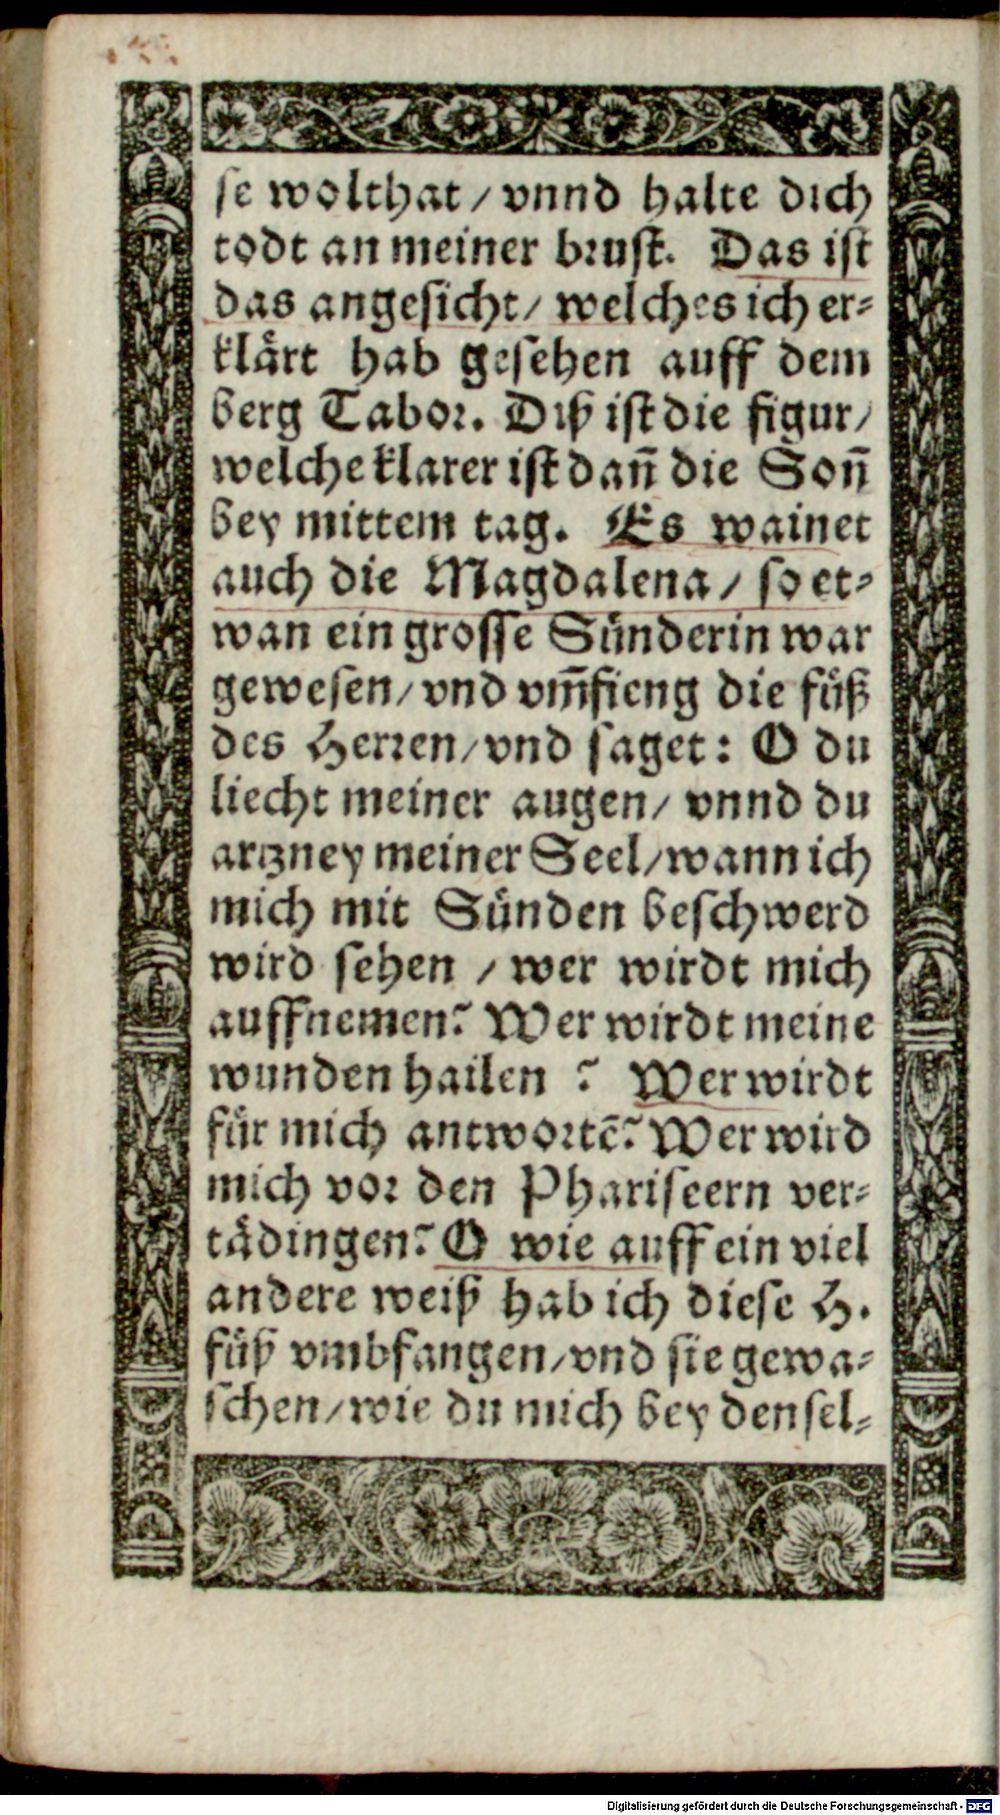 se wolthat / vnnd halte dich
todt an meiner brust. Das ist
das angesicht / welches ich er-
klärt hab gesehen auff dem
berg Tabor. Diß ist die figur /
welche klarer ist dañ die Soñ
bey mittem tag. Es wainet
auch die Magdalena / so et-
wan ein grosse Sünderin war
gewesen / vnd vm̃fieng die füß
des Herren / vnd saget: O du
liecht meiner augen / vnnd du
artzney meiner Seel / wann ich
mich mit Sünden beschwerd
wird sehen / wer wirdt mich
auffnemen? Wer wirdt meine
wunden hailen ? Wer wirdt
für mich antwortē? Wer wird
mich vor den Phariseern ver-
tädingen? O wie auff ein viel
andere weiß hab ich diese H.
füß vmbfangen / vnd sie gewa-
schen / wie du mich bey densel-
Digitalisierung gefördert durch die Deutsche Forschungsgemeinschaft - DFG